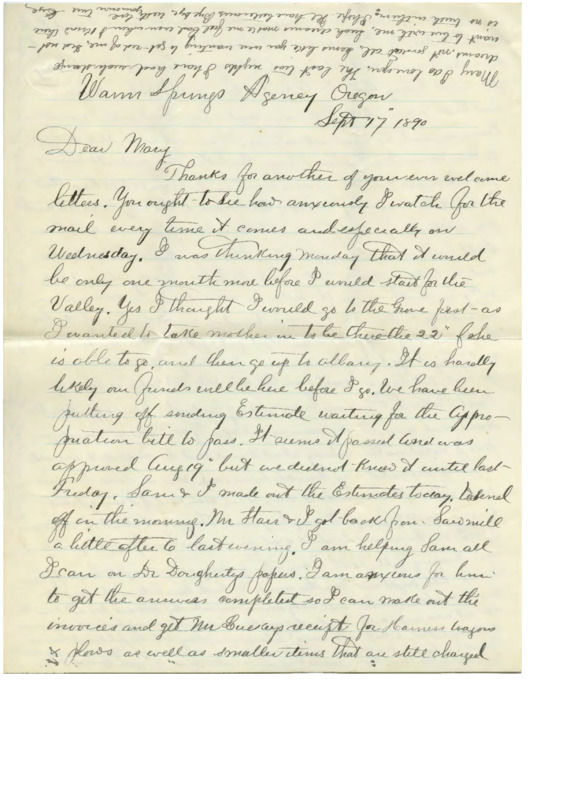 Mary I do love you. The last two nights I have had such strange
dreams, not good at all,
want to live with me,
is no such nothing, I hope
Warm Springs Agency Oregon
Sept 17" 1890
Dear Mary
Thanks for another of your ever welcome
letters. You ought to see how anxiously I watch for the
mail every time it comes and especially on
Wednesday. I was thinking monday that it would
be only one month more before I would start for the
Valley. Yes I thought I would go to the Grove first as
I wanted to take mother in to be there the 22" if she
is able to go, and then go up to albany. It is hardly
likely our funds will be here before I go. We have been
putting off sending Estimate waiting for the appro-
priation bill to pass. It seems it passed and was
approved Aug 19" but we did not know it until last
Friday. Sam & I made out the Estimates today, to send
off in the morning. Mr Starr & I got back from Sawmill
a little after 10 last evening. I am helping Sam all
I can on Dr Doughertys papers. I am anxious for him
to get the answers completed so I can make out the
invoices and get Mr Luckeys receipt for Harness wagons
& plows as well as smaller items that are still charged